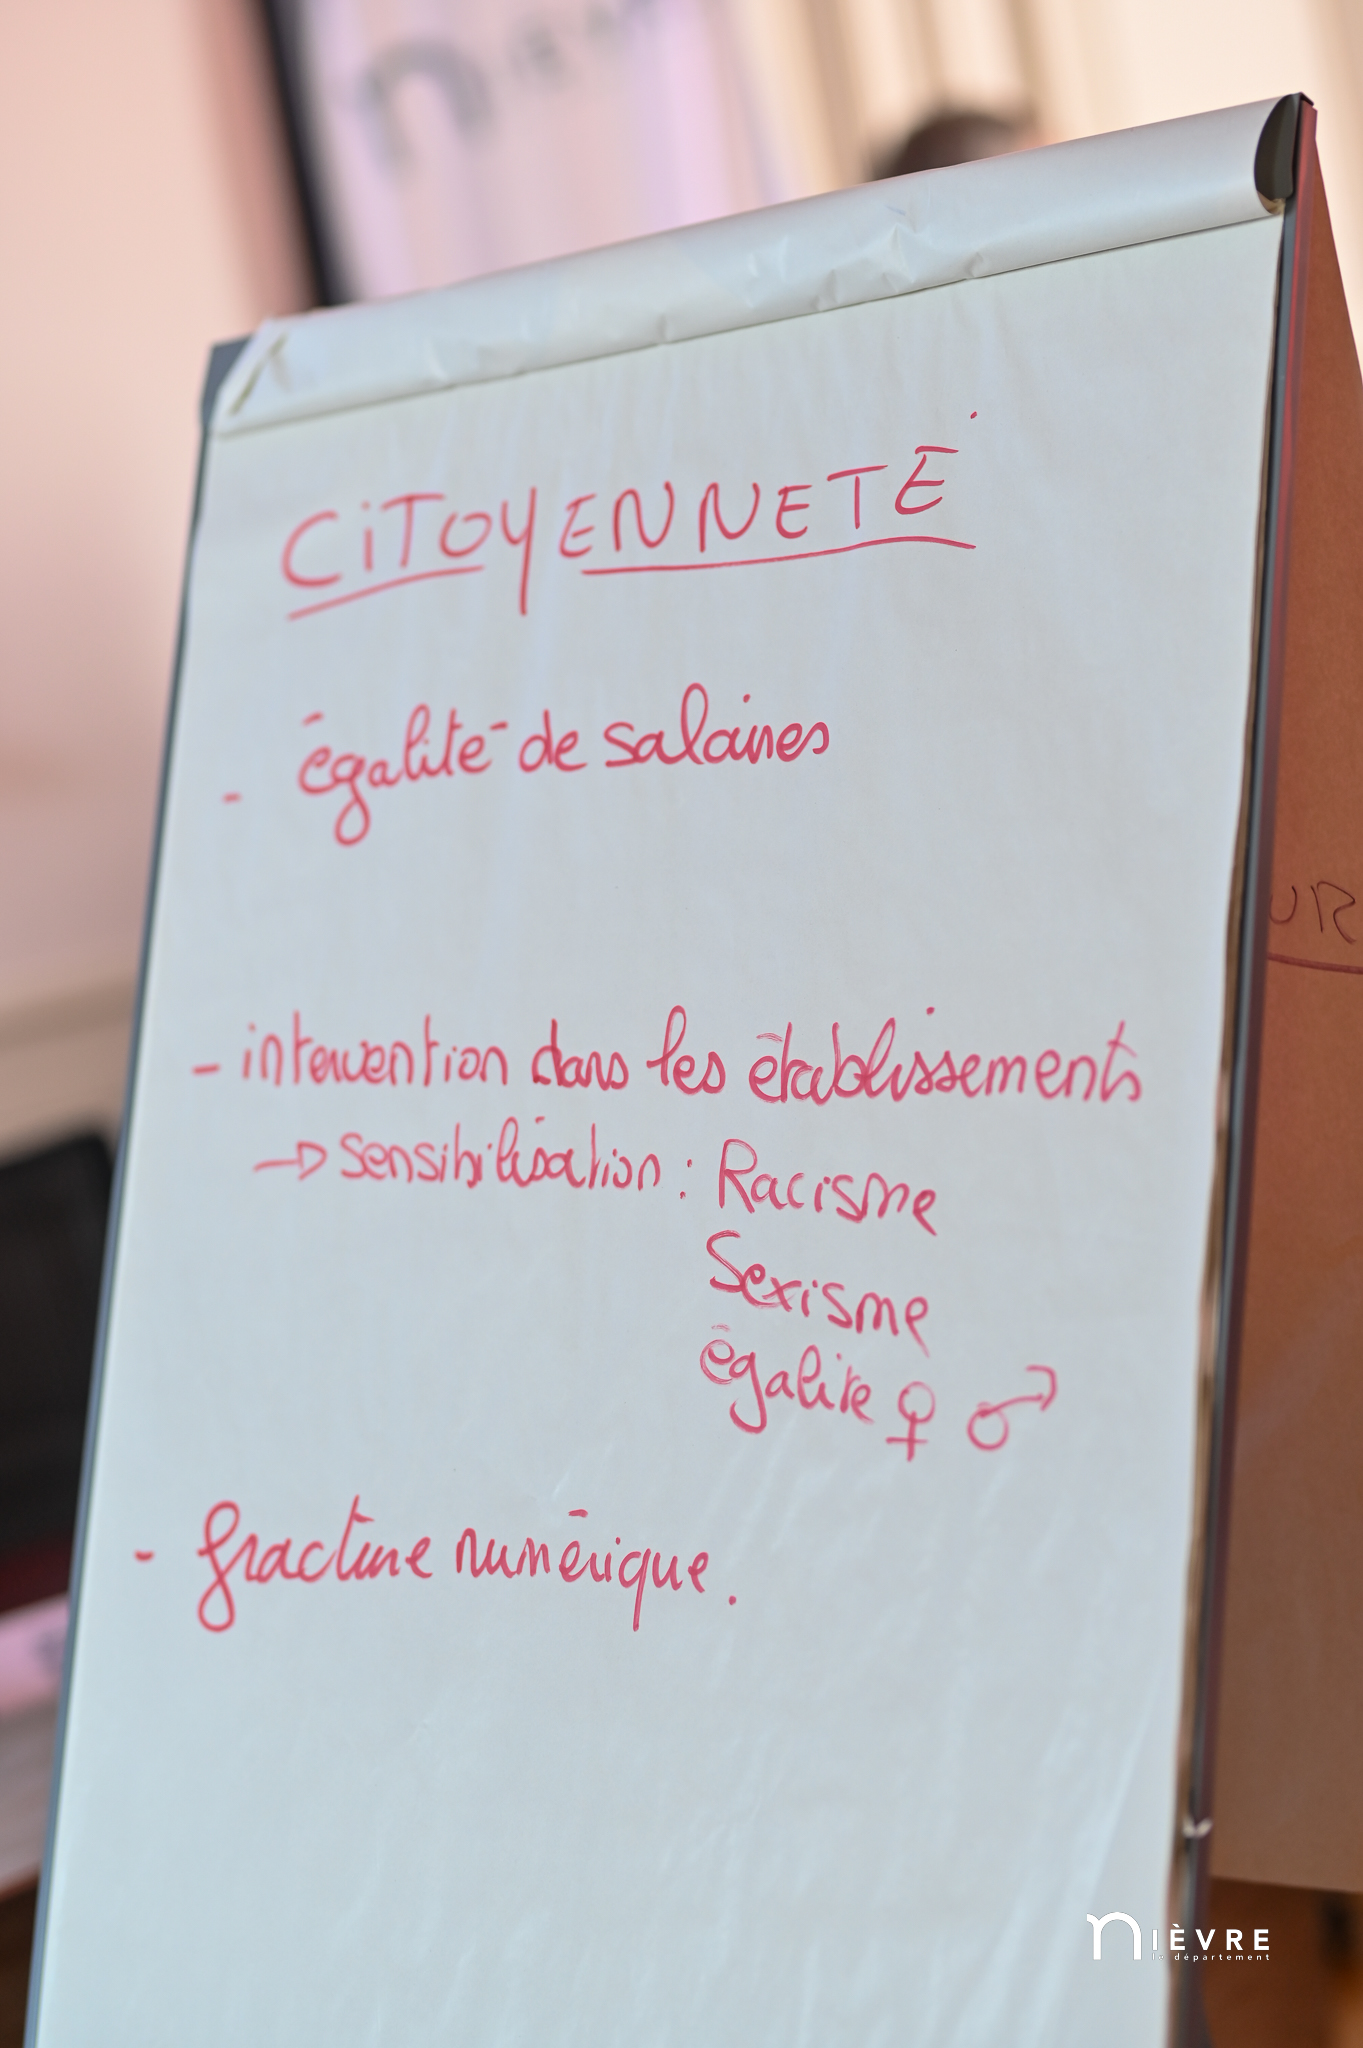 CiTOYENNETÉ
- égalité de salaires
- intervention dans les établissements
→ sensibilisation : Racisme
Sexisme
égalité ♀ ♂
- fracture numérique.
UR
NIÈVRE
le département